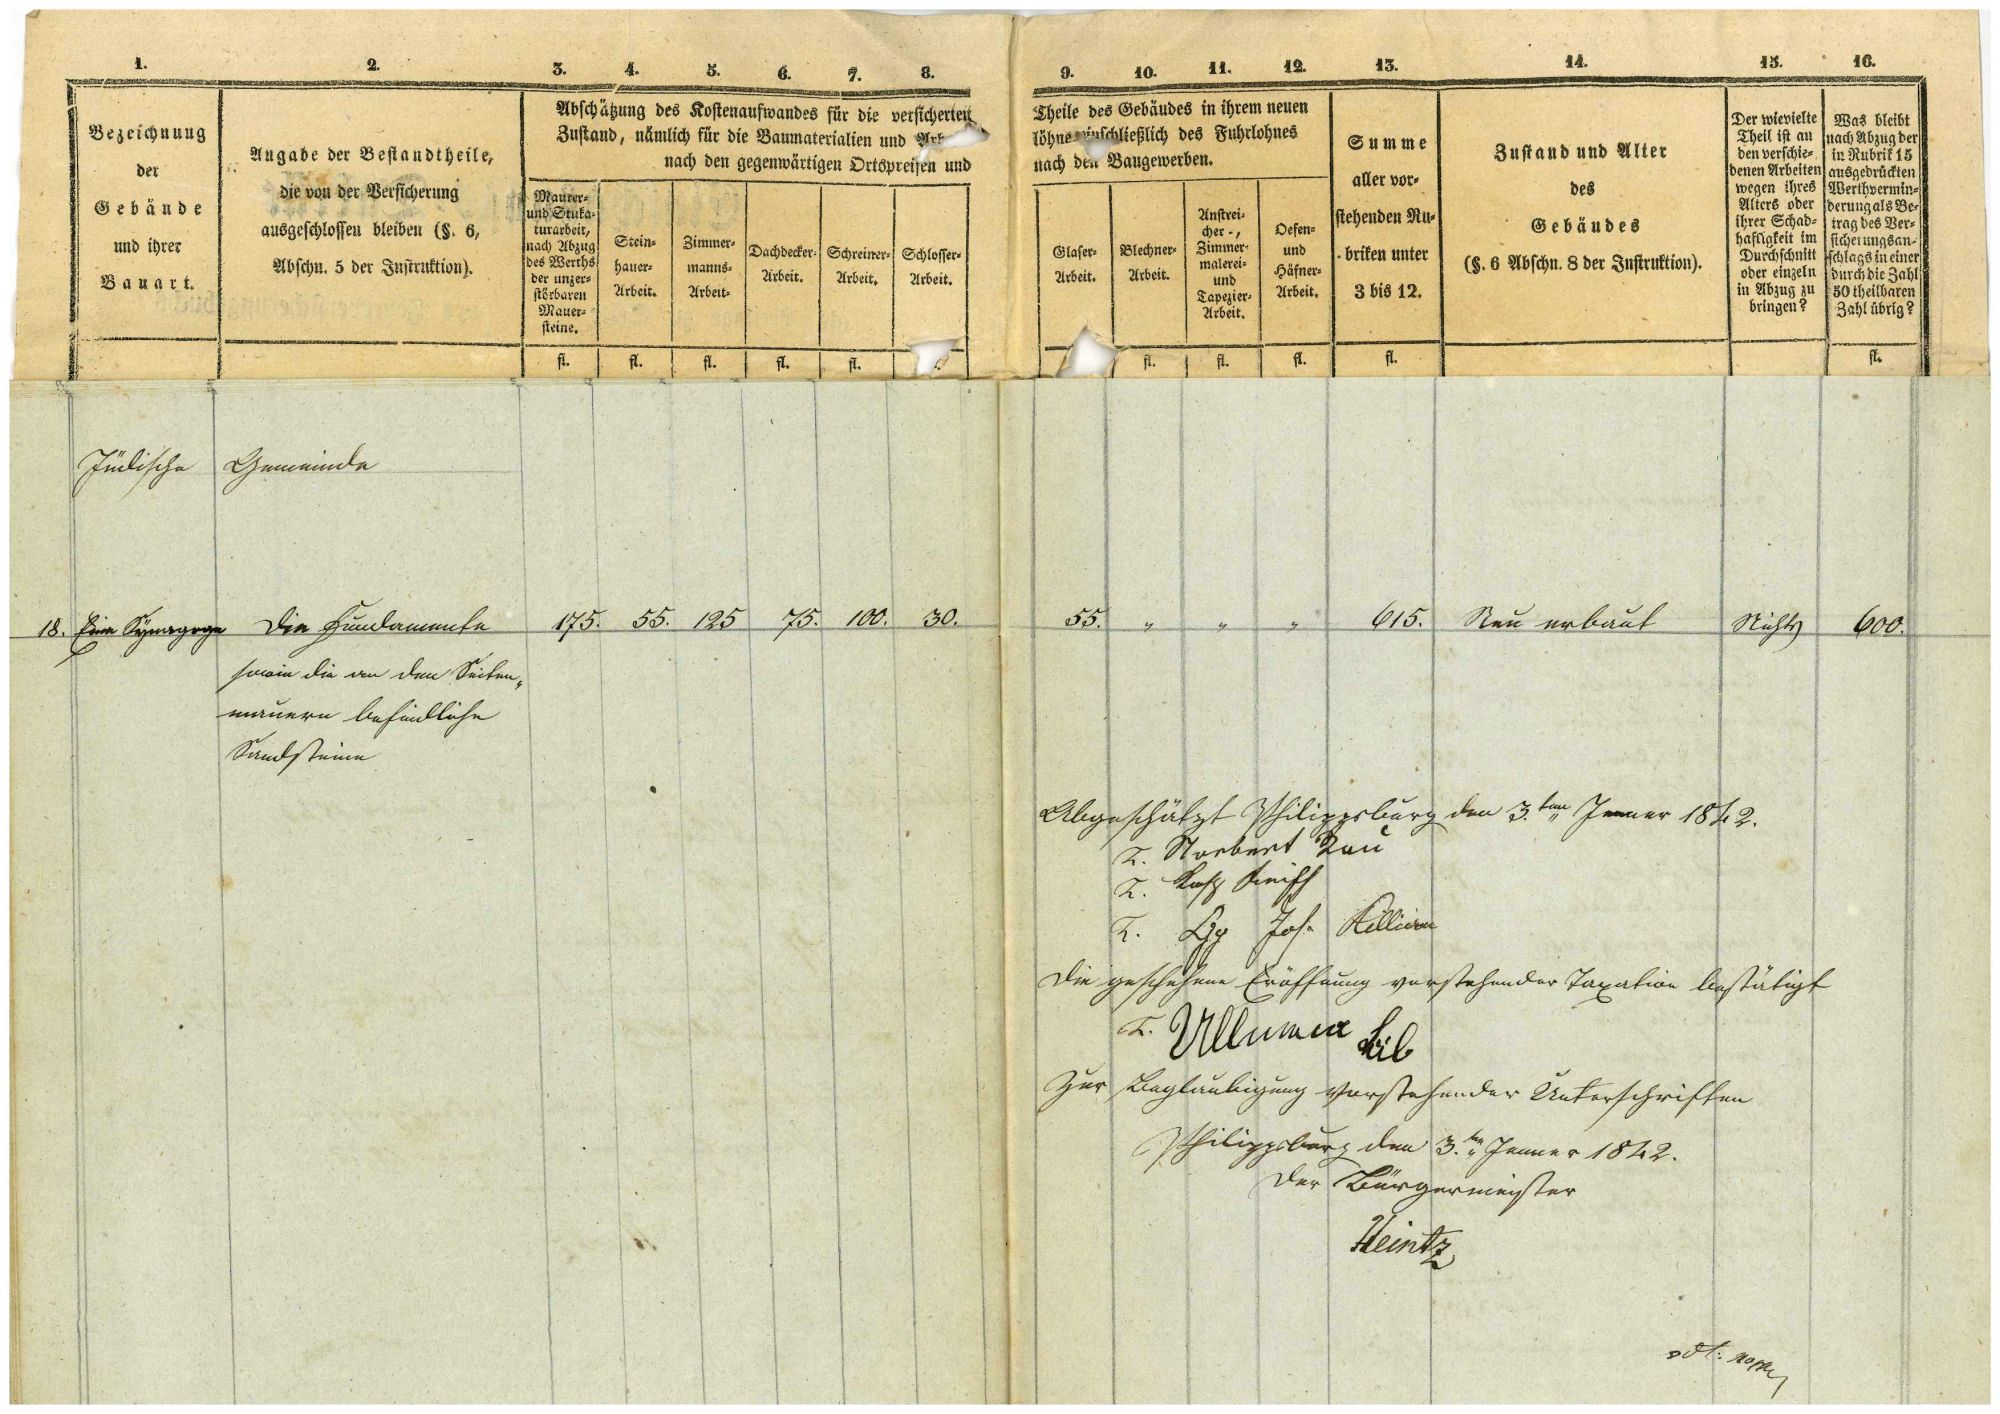 1. 2. 3. 4. 5. 6. 7. 8. 9. 10. 11. 12. 13. 14. 15. 16.
Bezeichnung
der
Gebäude
und ihrer
Bauart.
Angabe der Bestandtheile,
die von der Versicherung
ausgeschlossen bleiben (§. 6,
Abschn. 5 der Instruktion).
Abschätzung des Kostenaufwandes für die versicherten
Zustand, nämlich für die Baumaterialien und
nach den gegenwärtigen Ortspreisen und
Maurer-
und Stuka-
turarbeit,
nach Abzug
des Werths
der unzer-
störbaren
Mauer-
steine.
Stein-
hauer-
Arbeit.
Zimmer-
manns-
Arbeit.
Dachdecker-
Arbeit.
Schreiner-
Arbeit.
Schlosser-
Arbeit.
Theile des Gebäudes in ihrem neuen
löhne einschließlich des Fuhrlohnes
nach den Baugewerben.
Glaser-
Arbeit.
Blechner-
Arbeit.
Anstrei-
cher-,
Zimmer-
malerei-
und
Tapezier-
Arbeit.
Oefen-
und
Häfner-
Arbeit.
Summe
aller vor-
stehenden Ru-
briken unter
3 bis 12.
Zustand und Alter
des
Gebäudes
(§. 6 Abschn. 8 der Instruktion).
Der wievielte
Theil ist an
den verschie-
denen Arbeiten
wegen ihres
Alters oder
ihrer Schad-
haftigkeit im
Durchschnitt
oder einzeln
in Abzug zu
bringen?
Was bleibt
nach Abzug der
in Rubrik 15
ausgedrückten
Werthvermin-
derung als Be-
trag des Ver-
sicherungsan-
schlags in einer
durch die Zahl
50 theilbaren
Zahl übrig?
fl. fl. fl. fl. fl. fl. fl. fl. fl. fl.
Jüdische Gemeinde
18. Eine Synagoge Die Fundamente 175. 55. 125 75. 100. 30. 55. " " " 615. Neu erbaut Nichts 600.
sowie die an den Seiten-
mauern befindliche
Sandsteine
Abgeschätzt Philippsburg den 3.ten Jenner 1842.
T. Norbert Rau
T.
T. Jos. Killian
Die geschehene Eröffnung vorstehender Taxation bestätigt
T. Ullmann Löb
Zur Beglaubigung vorstehender Unterschriften
Philippsburg den 3.ten Jenner 1842.
Der Bürgermeister
Heintz